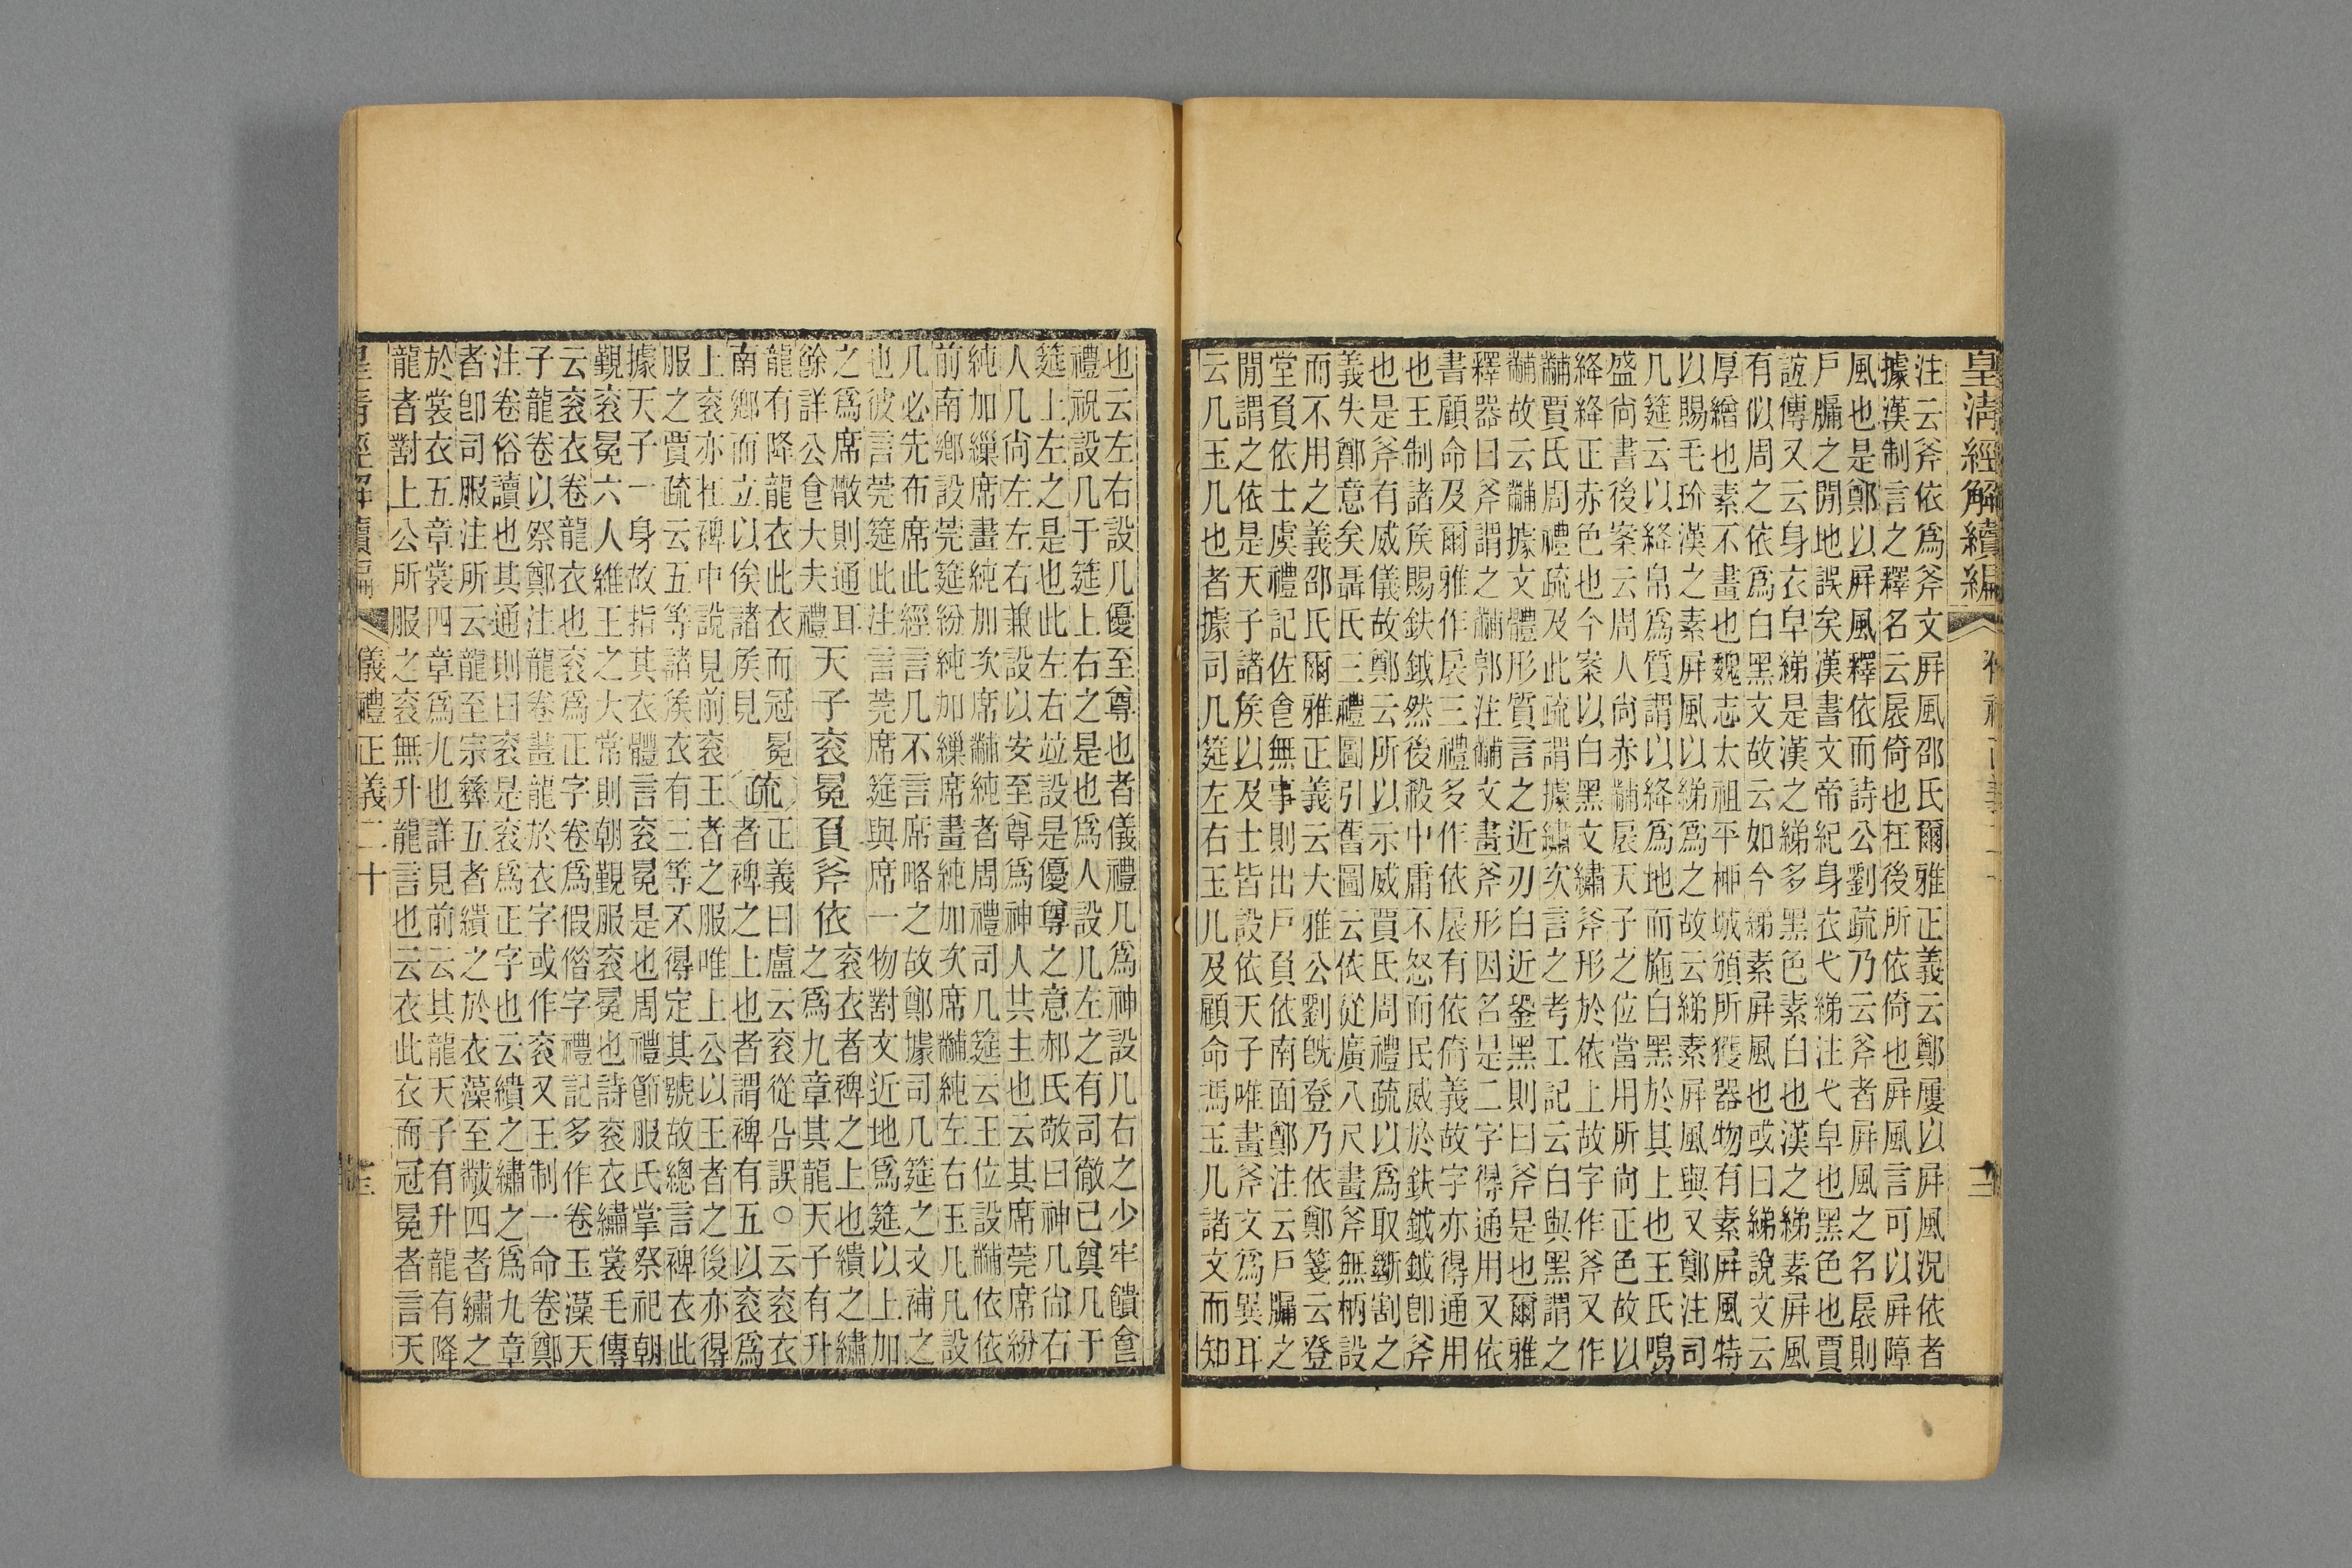 皇清經解續編
注云斧依爲斧文屏風邵氏爾雅正義云鄭屢以屏風況依者
據漢制言之釋名云扆倚也在後所依倚也屏風言可以屏障
風也是鄭以屏風釋依而詩公劉疏乃云斧者屏風之名扆則
戸牖之閒地誤矣漢書文帝紀身衣弋綈注弋皁也黑色也賈
誼傳又云身衣皁綈是漢之綈多黑色素白也漢之綈素屏風
有似周之依爲白黑文故云如今綈素屏風也或曰綈說文云
厚繒也素不畫也魏志太祖平柳城頒所獲器物有素屏風特
以賜毛玠漢之素屏風以綈爲之故云綈素屏風與又鄭注司
几筵云以絳帛爲質謂以絳爲地而施白黑於其上也王氏鳴
盛尙書後案云周人尙赤黼扆天子之位當用所尙正色故以
絳絳正赤色也今案以白黑文繡斧形於依上故字作斧又作
黼賈氏周禮疏及此疏謂據繡次言之考工記云白與黑謂之
黼故云黼據文體形質言之近刃白近銎黑則曰斧是也爾雅
釋器曰斧謂之黼郭注黼文畫斧形因名是二字得通用又依
書顧命及爾雅作扆三禮多作依扆有依倚義故字亦得通用
也王制諸矦賜鈇鉞然後殺中庸不怒而民威於鈇鉞鉞卽斧
也是斧有威儀故鄭云所以示威賈氏周禮疏以爲取斷割之
義失鄭意矣聶氏三禮圖引舊圖云依從廣八尺畫斧無柄設
而不用之義邵氏爾雅正義云大雅公劉旣登乃依鄭箋云登
堂負依士虞禮記佐食無事則出戸負依南面鄭注云戸牖之
閒謂之依是天子諸矦以及士皆設依天子唯畫斧文爲異耳
云几玉几也者據司几筵左右玉几及顧命馮玉几諸文而知
也云左右設几優至尊也者儀禮几爲神設几右之少牢饋食
禮祝設几于筵上右之是也爲人設几左之有司徹已奠几于
筵上左之是也此左右竝設是優尊之意郝氏敬曰神几尙右
人几尙左左右兼設以安至尊爲神人共主也云其席莞席紛
純加繅席畫純加次席黼純者周禮司几筵云王位設黼依依
前南鄉設莞筵紛純加繅席畫純加次席黼純左右玉几凡設
几必先布席此經言几不言席略之故鄭據司几筵之文補之
也彼言莞筵此注言莞席筵與席一物對文近地爲筵以上加
之爲席散則通耳
餘詳公食大夫禮
天子袞冕負斧依
袞衣者裨之上也繢之繡
之爲九章其龍天子有升
龍有降龍衣此衣而冠冕
南鄉而立以俟諸矦見
疏
正義曰盧云袞從㕣誤〇云袞衣
者裨之上也者謂裨有五以袞爲
上袞亦在裨中說見前袞王者之服唯上公以王者之後亦得
服之賈疏云五等諸矦衣有三等不得定其號故總言裨衣此
據天子一身故指其衣體言袞冕是也周禮節服氏掌祭祀朝
覲袞冕六人維王之大常則朝覲服袞冕也詩袞衣繡裳毛傳
云袞衣卷龍衣也袞爲正字卷爲假借字禮記多作卷玉藻天
子龍卷以祭鄭注龍卷畫龍於衣字或作袞又王制一命卷鄭
注卷俗讀也其通則曰袞是袞爲正字也云繢之繡之爲九章
者卽司服注所云龍至宗彝五者繢之於衣藻至黻四者繡之
於裳衣五章裳四章爲九也詳見前云其龍天子有升龍有降
龍者對上公所服之袞無升龍言也云衣此衣而冠冕者言天
皇淸經解續編
儀禮正義二十
三